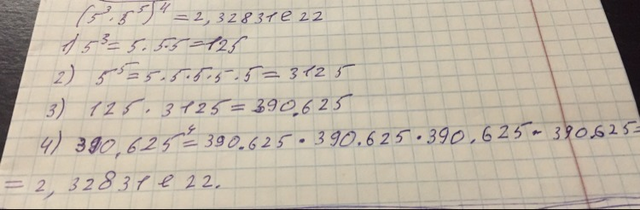 (5³·5⁵)⁴ = 2,32831 e 22
1) 5³ = 5·5·5 = 125
2) 5⁵ = 5·5·5·5·5 = 3125
3) 125 · 3125 = 390.625
4) 390,625⁴ = 390.625 · 390.625 · 390,625 · 390.625 =
= 2,32831 e 22.